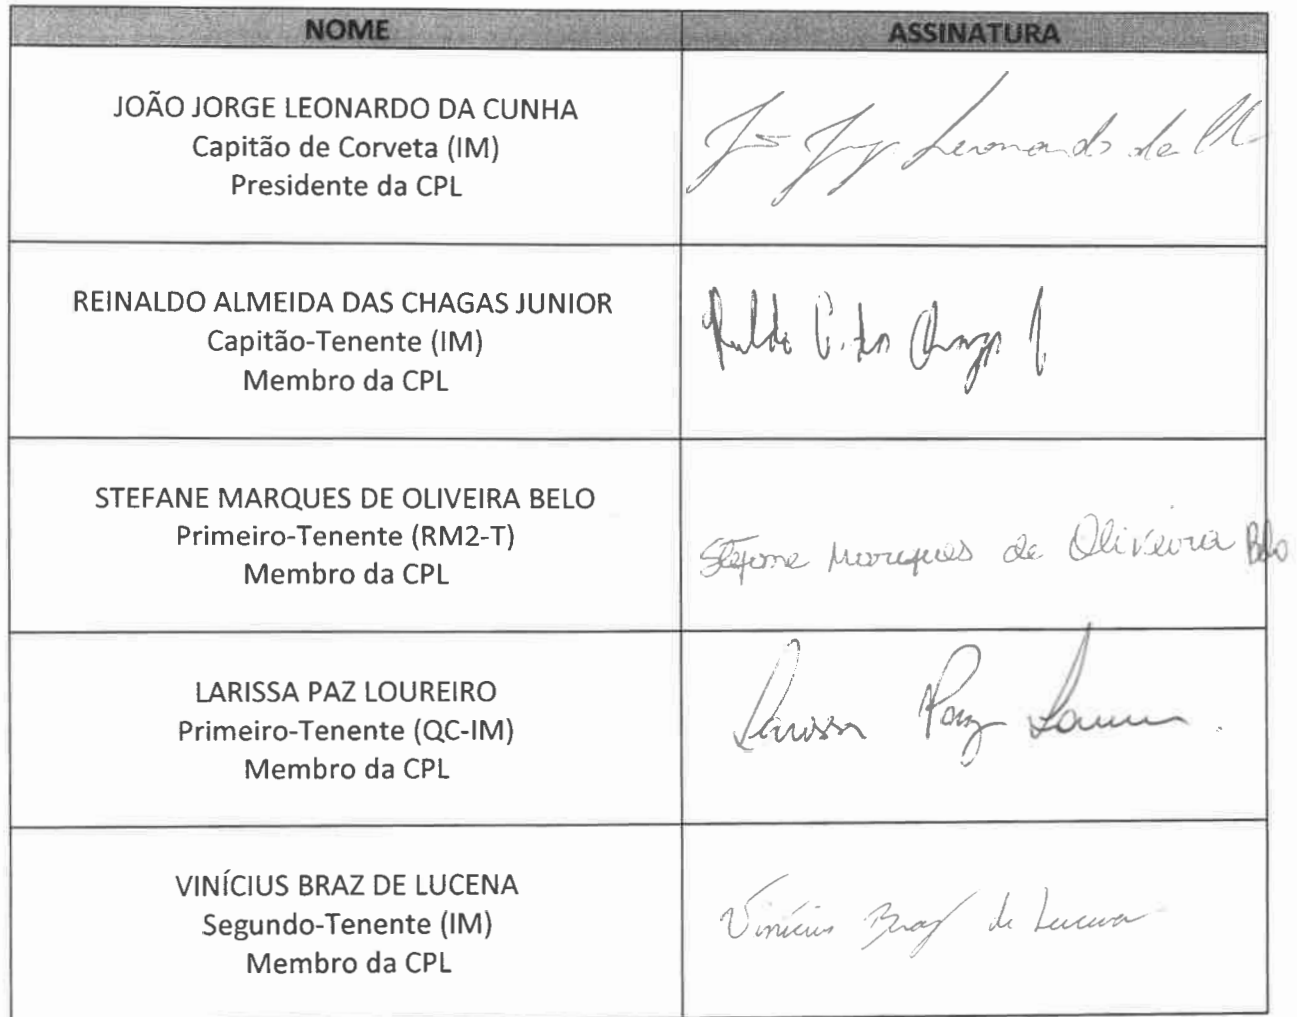 NOME
ASSINATURA
JOÃO JORGE LEONARDO DA CUNHA
Capitão de Corveta (IM)
Presidente da CPL
Leonardo da
REINALDO ALMEIDA DAS CHAGAS JUNIOR
Capitão-Tenente (IM)
Membro da CPL
STEFANE MARQUES DE OLIVEIRA BELO
Primeiro-Tenente (RM2-T)
Membro da CPL
Stefane Marques de Oliveira Belo
LARISSA PAZ LOUREIRO
Primeiro-Tenente (QC-IM)
Membro da CPL
Larissa Paz
VINÍCIUS BRAZ DE LUCENA
Segundo-Tenente (IM)
Membro da CPL
Vinícius Braz de Lucena